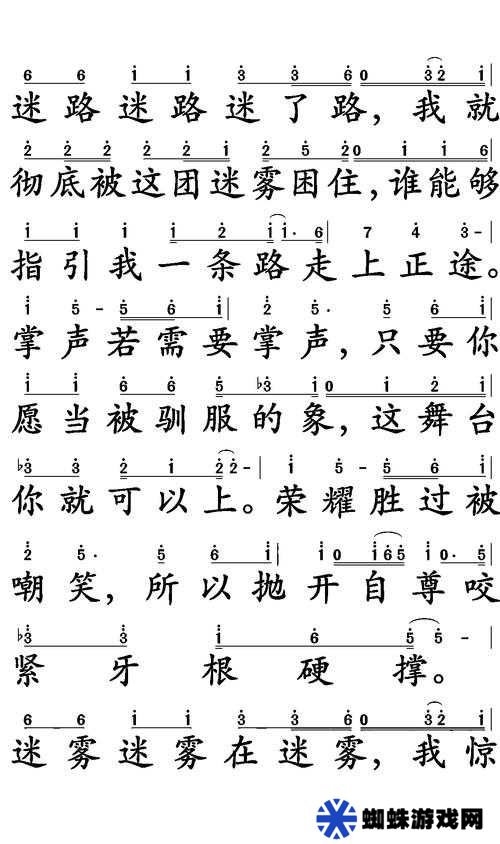 6 6 1 1 3 3 6 0 3 2 1
迷路迷路迷了路，我就
2 2 2 2 2 1 2 5 2 0 1 1 6
彻底被这团迷雾困住，谁能够
1 1 1 1 2 1 1· 6 7 4 3 -
指引我一条路走上正途。
1 5 - 5 6 1 2 5· 5 6 1
掌声若需要掌声，只要你
1 1 6 6 5 ♭3 1 0 1 2 1
愿当被驯服的象，这舞台
♭3 3 2 1 2 2 - 1 5 - 5 6 1
你就可以上。荣耀胜过被
2 5· 5 6 1 1 0 1 6 5 1 0· 5
嘲笑，所以抛开自尊咬
♭3 3 1 6 5 5 -
紧牙根硬撑。
6 6 1 1 3 3 6 0 3 2 1
迷雾迷雾在迷雾，我惊
蜘蛛游戏网